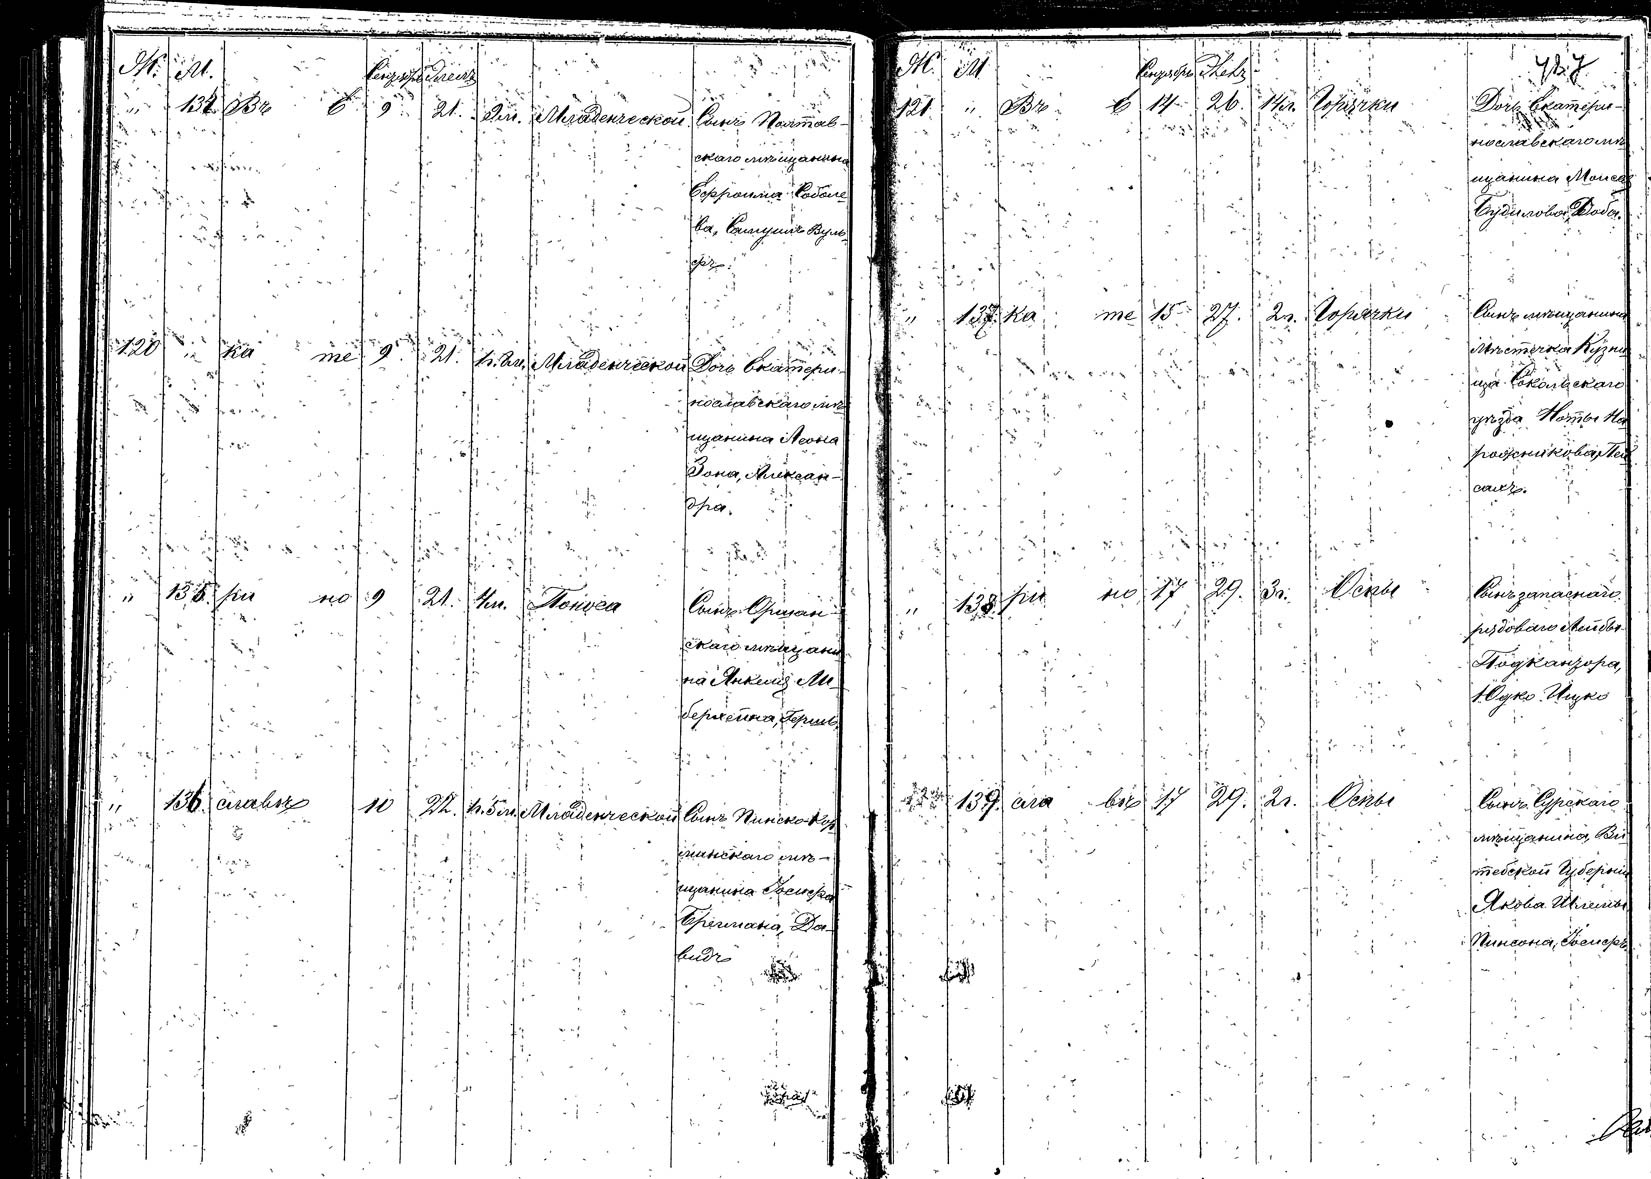 Ж. М. Сентябрь Элелъ
" 134 Въ Е 9 21. 2м. Младенческой Сынъ Полтав-
скаго мѣщанина
Ефроима Соболе-
ва, Самуилъ Вуль-
фъ.
120 " ка те 9 21. н. 2м. Младенческой Дочь Екатери-
нославскаго мѣ-
щанина Леона
Зона, Алексан-
дра.
" 135. ри но 9 21. 4м. Поноса Сынъ Оршан-
скаго мѣщани-
на Янкеля Ли-
бергейна, Герш
" 136. славѣ 10 22. н. 5м. Младенческой Сынъ Пинско-Кор
линскаго мѣ-
щанина Іосифа
Брегмана, Да-
видъ
Ж. М Сентябрь Элелъ
121 " Въ Е 14 26. 14л. Горячки Дочь Екатери-
нославскаго мѣ-
щанина Моисея
Будилова, Доба.
" 137. ка те 15 27. 2г. Горячки Сынъ мѣщанина
мѣстечка Кузни-
ца Сокольскаго
уѣзда Ноты На
рожникова, Пей
сахъ.
" 138. ри но 17 29. 3г. Оспы Сынъ запаснаго
рядоваго Лейбы
Подканзора,
Юдко Ицко
139. сла вѣ 17 29. 2г. Оспы Сынъ Сурскаго
мѣщанина, Ви-
тебской Губерніи
Якова Шлемы
Пинсона, Іосифъ.